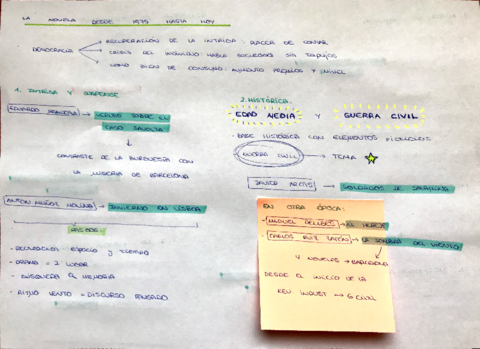 LA NOVELA DESDE 1975 HASTA HOY
DEMOCRACIA
RECUPERACIÓN DE LA INTRIGA: PLACER DE CONTAR
CRISIS DEL HABLA SOCIEDAD SIN TAPUJOS
COMO BIEN DE CONSUMO: AUMENTO PREMIOS Y
1. INTRIGA Y SUSPENSE
EDUARDO MENDOZA → VERDAD SOBRE EL
CASO SAVOLTA
CONTRASTE DE LA BURGUESÍA CON
LA MISERIA DE BARCELONA
ANTONIO MUÑOZ MOLINA → INVIERNO EN LISBOA
- ESPACIO Y TIEMPO
- = 2 LUGAR
- BÚSQUEDA MEMORIA
- RITMO LENTO = DISCURSO
2. HISTÓRICA.
EDAD MEDIA Y GUERRA CIVIL
- BASE HISTÓRICA CON ELEMENTOS
GUERRA CIVIL → TEMA
JAVIER CERCAS → SOLDADOS DE SALAMINA
EN OTRA ÉPOCA:
- MIGUEL DELIBES → EL HEREJE
- CARLOS RUIZ ZAFÓN → LA SOMBRA DEL VIENTO
4 NOVELAS → BARCELONA
DESDE EL INICIO DE LA
REV INDUST → G CIVIL